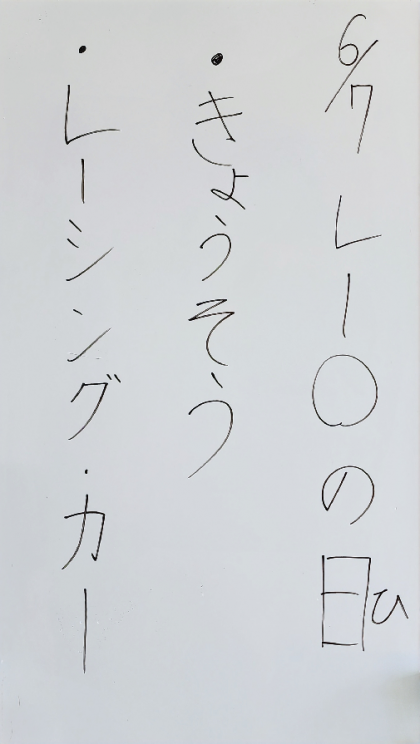 6/7 レー○の日ひ
・きょうそう
・レーシング・カー